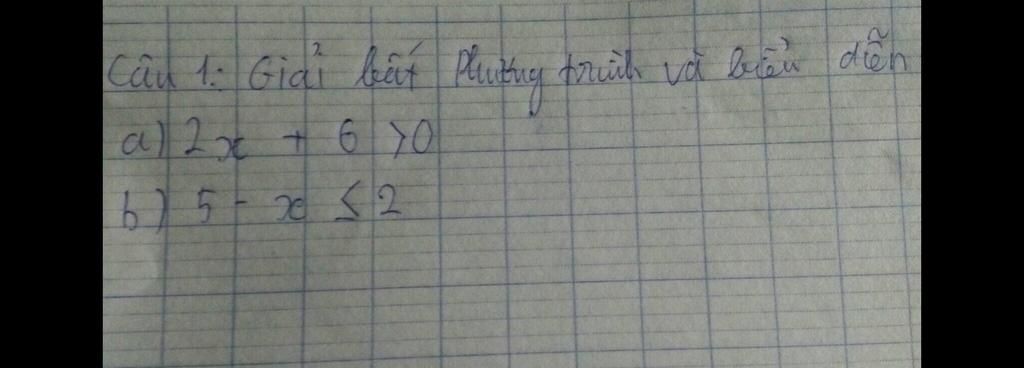 Câu 1: Giải bất phương trình và biểu diễn
a) 2x + 6 > 0
b) 5 - x ≤ 2